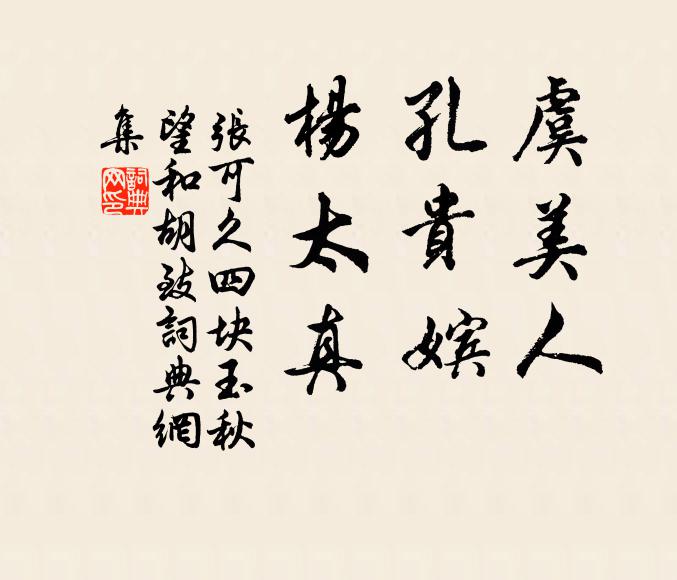 虞美人
孔貴嬪
楊太真
張可久四块玉秋
望和胡致詞典網
集
詞典
网印